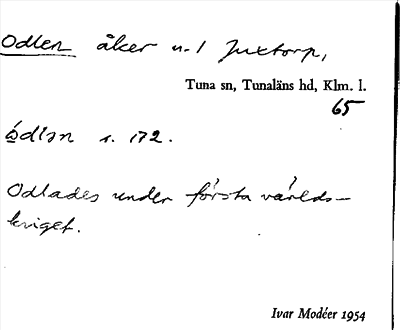 Odlen åker n. 1 Juxtorp,
Tuna sn, Tunaläns hd, Klm. l.
65
ódlən s. 172.
Odlades under första världs-
kriget.
Ivar Modéer 1954